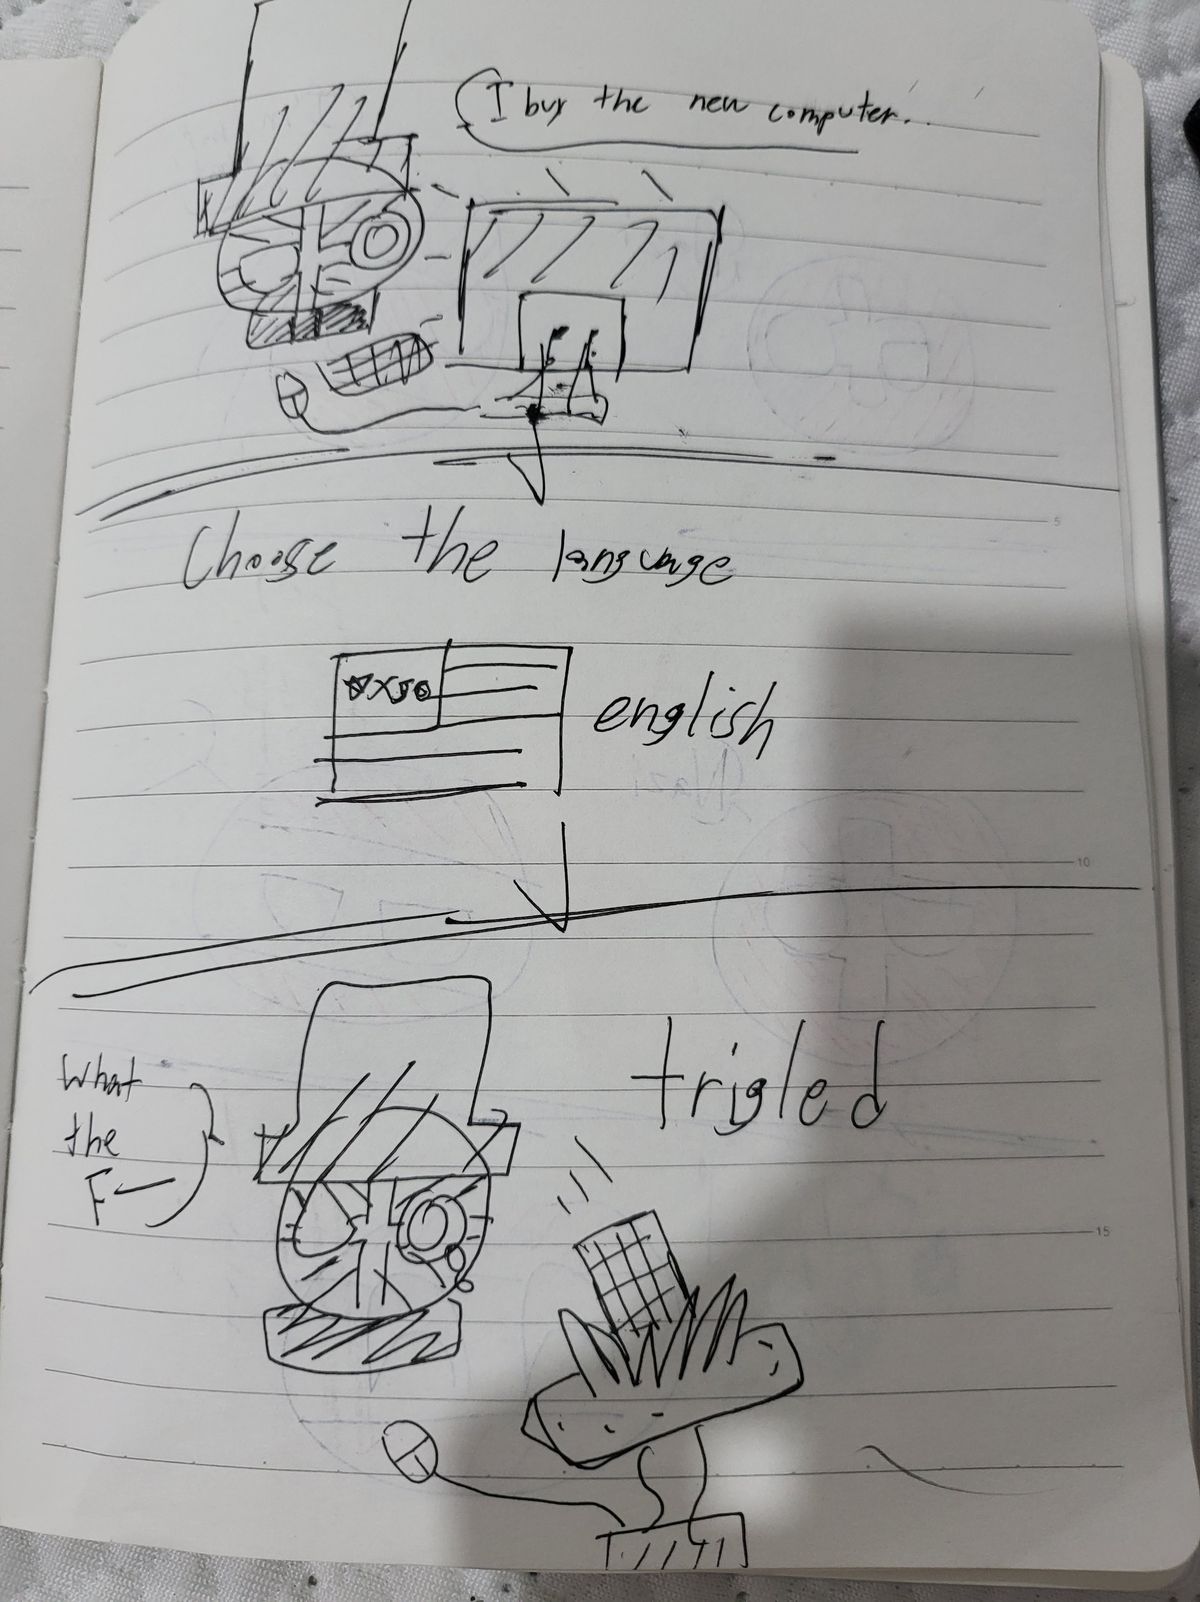 I buy the new computer..
Choose the language
english
What
the
F—
trigled
5
10
15